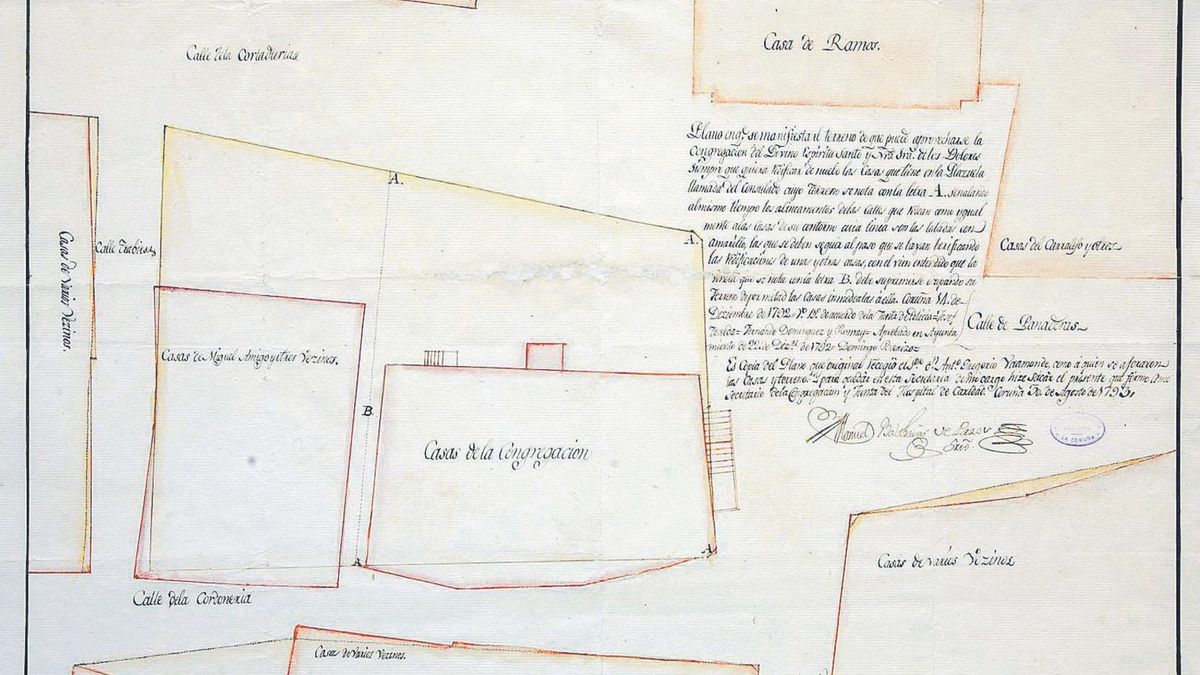 Calle dela Cortadurias
Casa de Ramos.
Plano enq.e se manifiesta el terreno de que puede aprovecharse la
Congregacion del Divino Espiritu Santo y Nra Sra. de los Dolores
siempre que quiera redificar de nuebo las Casas que tiene en la Plazuela
llamada del Consulado cuyo Terreno se nota con la letra A. senalando
almismo tiempo los alineamentos delas calles que rodean como ygual
mente alas casas de su contorno cuia linea son las labadas con
amarillo, las que se deben seguir al paso que se bayan berificando
las redificaciones de unas y otras casas, con el vien entendido que la
que se nota con la letra B. debe suprimirse ocupando su
Terreno de por mitad las Casas inmediatas á ella. Coruña de
Diziembre de 1792 de acuerdo dela Junta de Policia
Fernando Dominguez y Romay Aprobado en Ayunta
miento de 22 de Dez.re de 1792 Domingo
Es Copia del Plano que original recogió el S.or D.n Ant.o Gregorio como á quien se aforaron
las Casas y terreno. para quedar en esta Secretaria de mi cargo hize sacar el presente que firmo como
Secretario dela Congregacion y Junta del Hospital de Caridad. Coruña de Agosto de 1793.
Manuel
Srio.
LA CORUÑA
Casas de varios Vezinos.
Calle Trabiesa
A.
A.
Casas del Carragijo y otros
Calle de Panaderas
Casas de Miguel Amigo y otros Vezinos.
B.
Casas de la Congregacion
A
A
Casas de varios Vezinos
Calle dela Cordoneria
Casas de varios Vezinos.